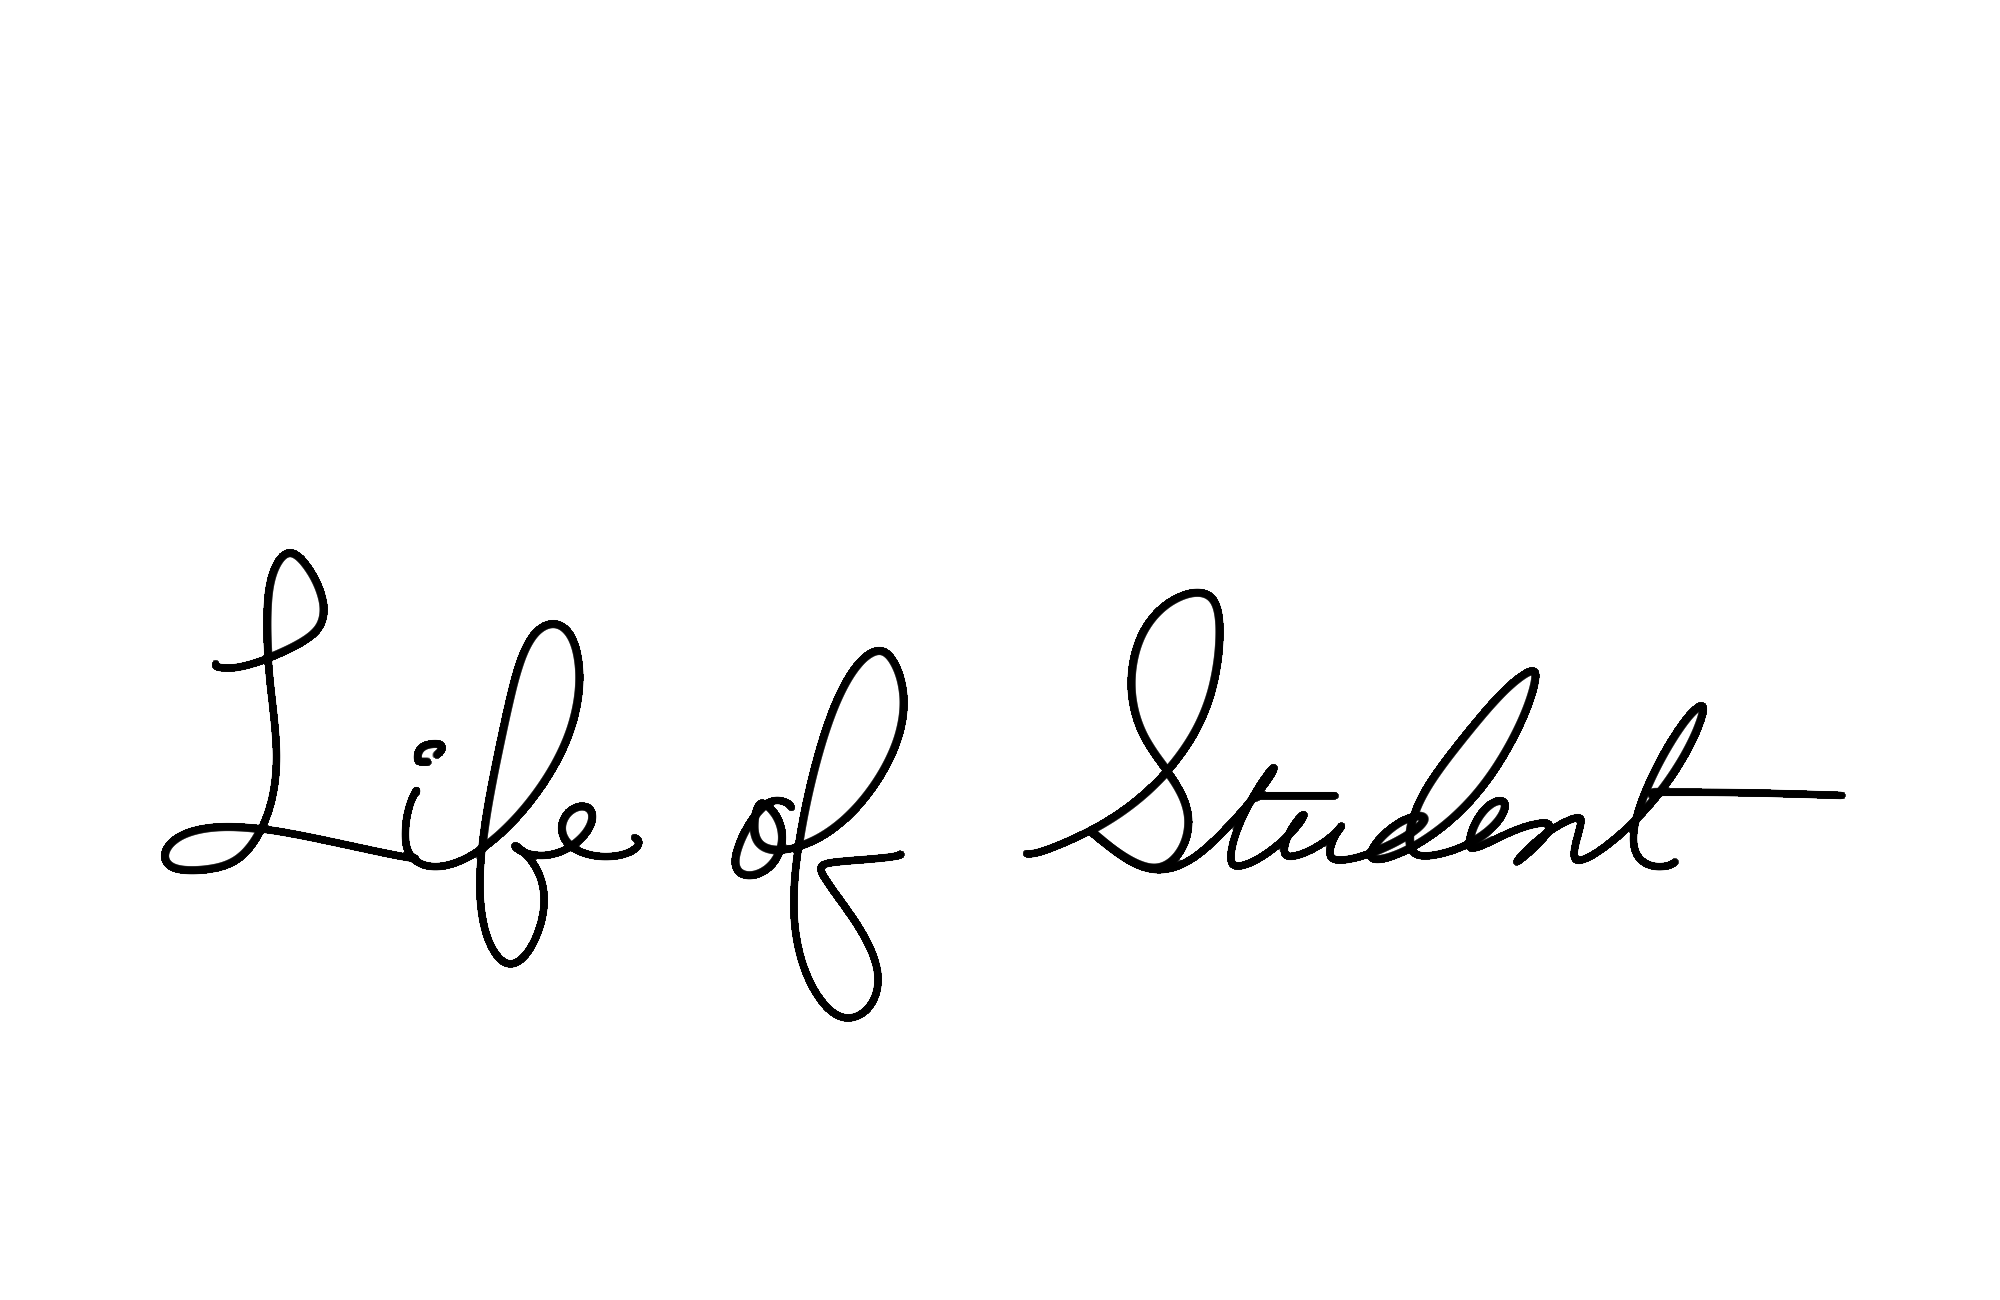 Life of Student